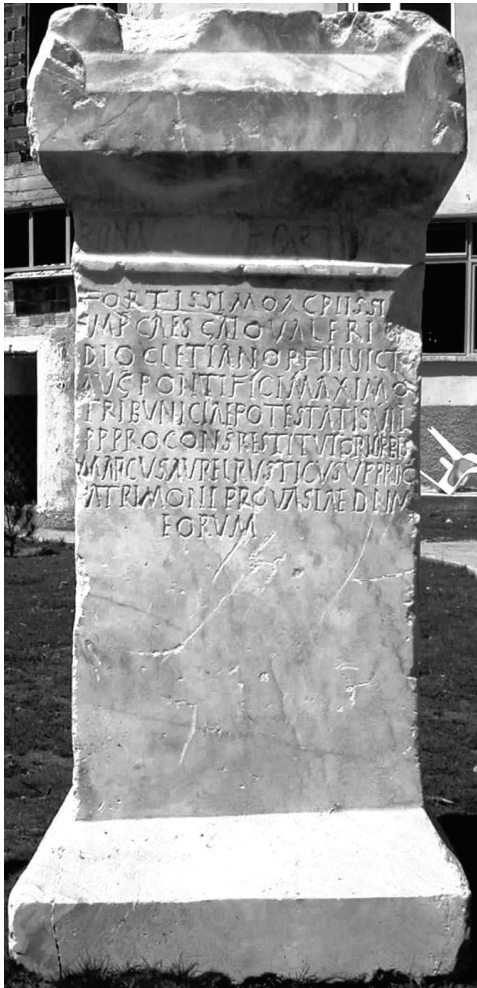 BONA FORTVN
FORTISSIMO AC PIISSI
IMP CAES GAIO VALERI
DIOCLETIANO P F INVICT
AVG PONTIFICI MAXIMO
TRIBVNICIAE POTESTATIS VIII
P P PROCONS RESTITVTORI
MARCVS AVREL RVSTICVS V P PROC
PATRIMONI PROV ASIAE D N IM
EORVM